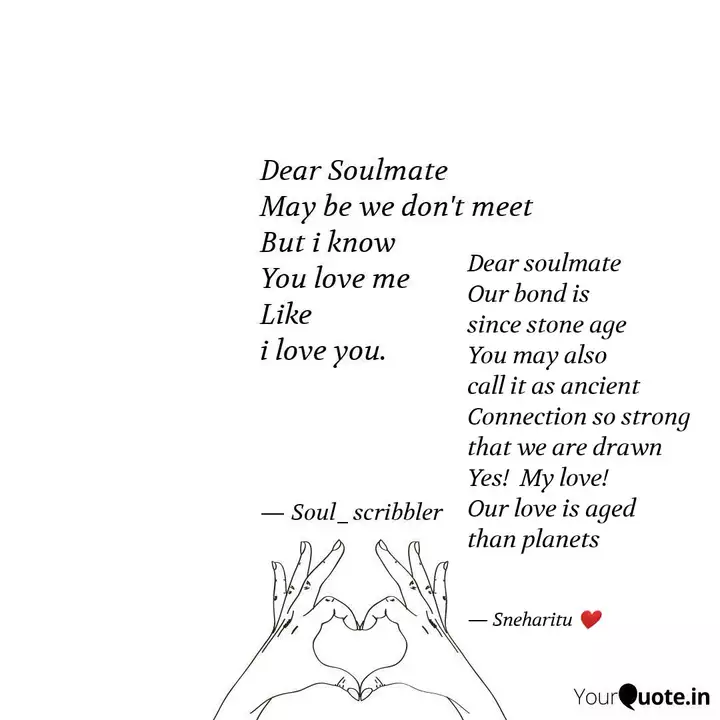 Dear Soulmate
May be we don't meet
But i know
You love me
Like
i love you.
— Soul_scribbler
Dear soulmate
Our bond is
since stone age
You may also
call it as ancient
Connection so strong
that we are drawn
Yes!  My love!
Our love is aged
than planets
— Sneharitu ❤️
YourQuote.in